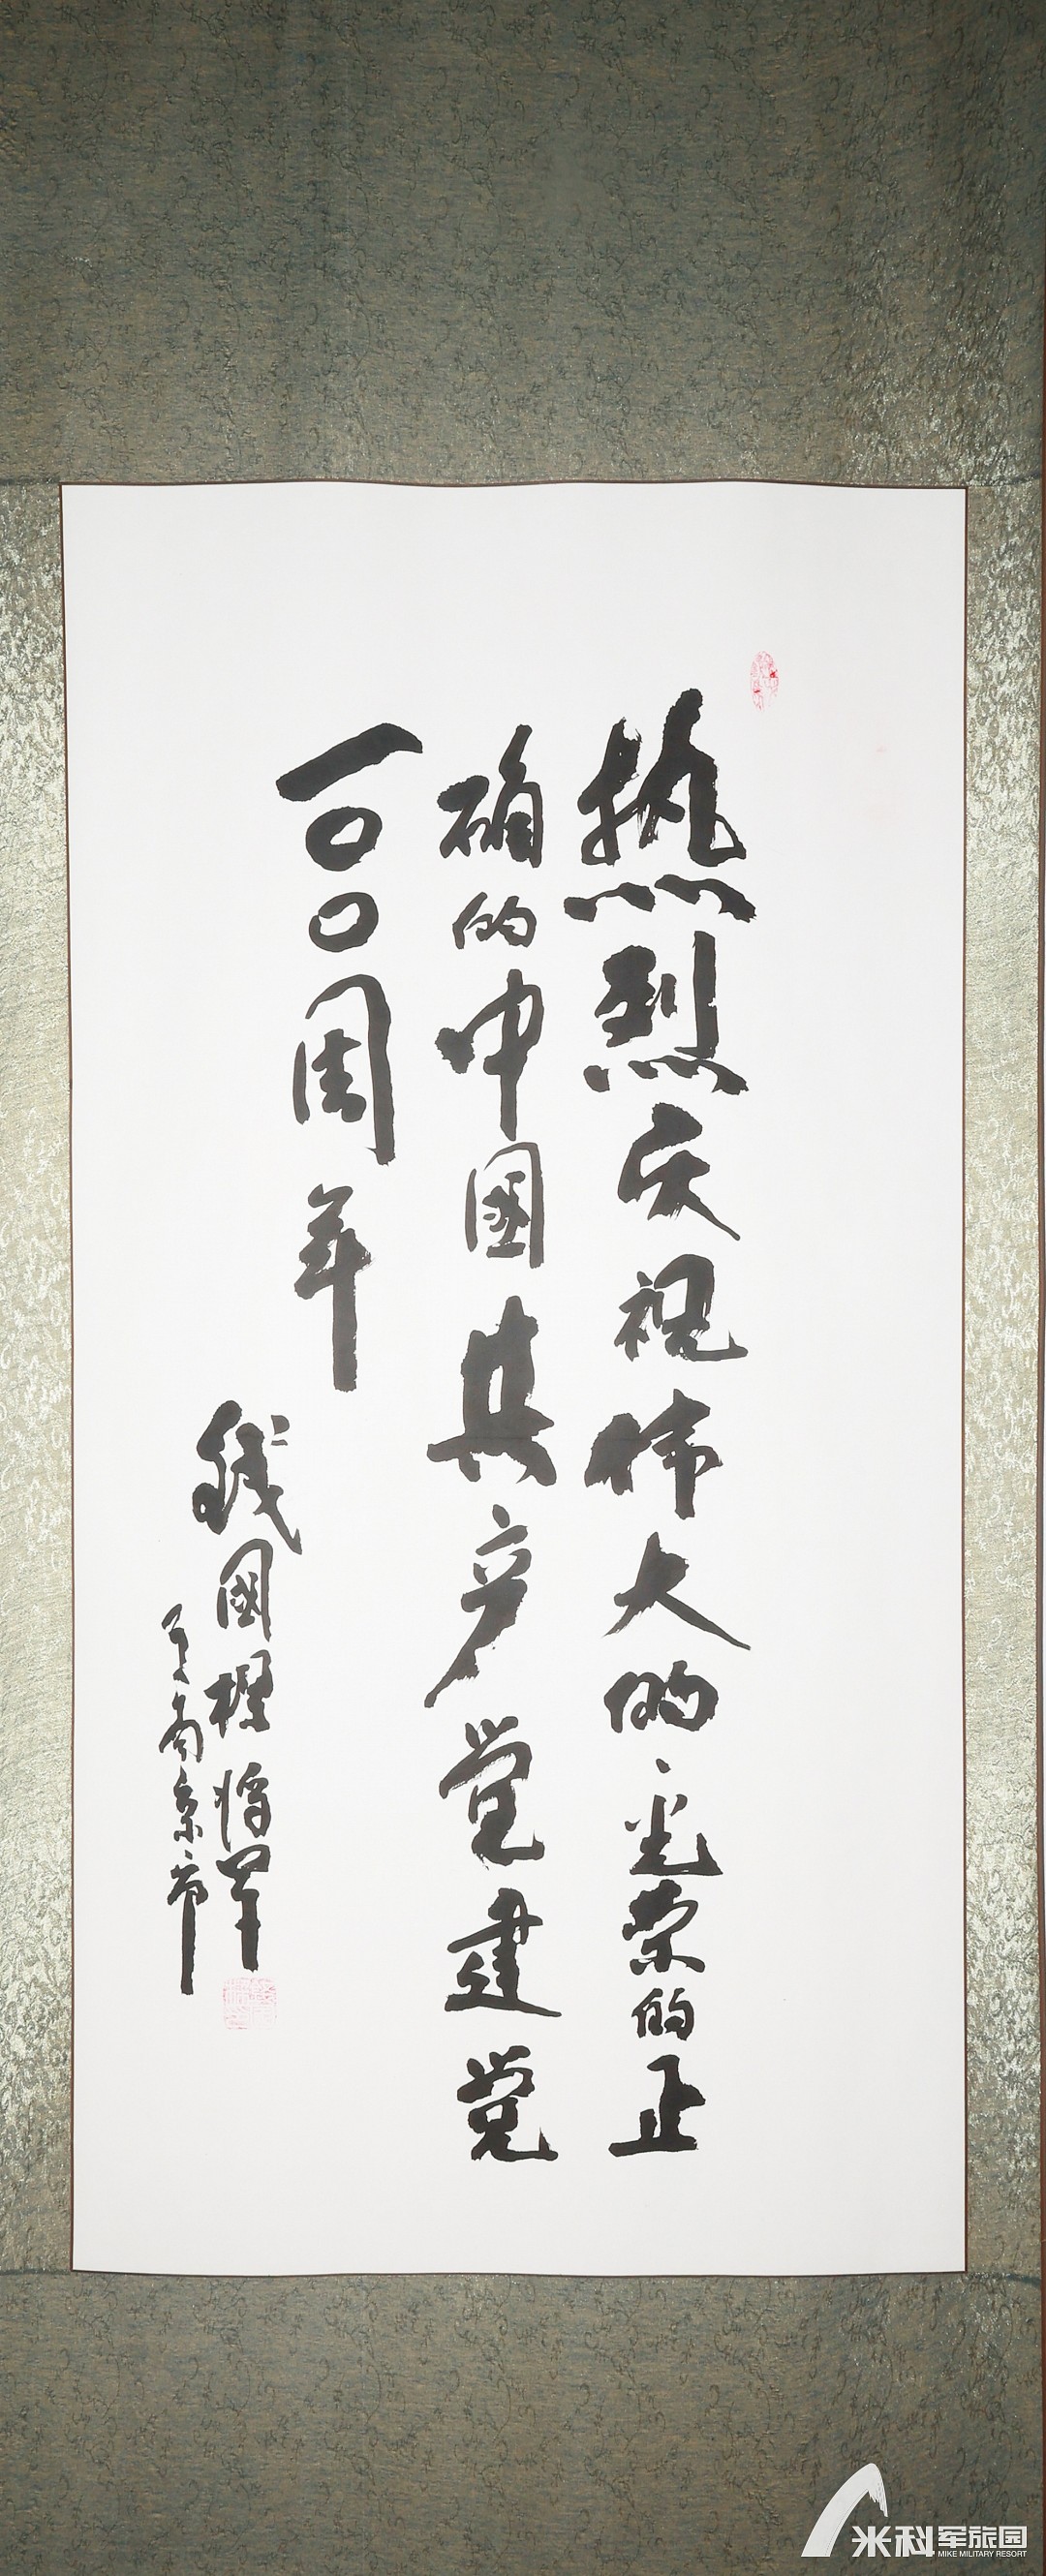 热烈庆祝伟大的、光荣的正
确的中國共产党建党
一〇〇周年
钱國樑将军
于南京市
米科军旅园
MIKE MILITARY RESORT